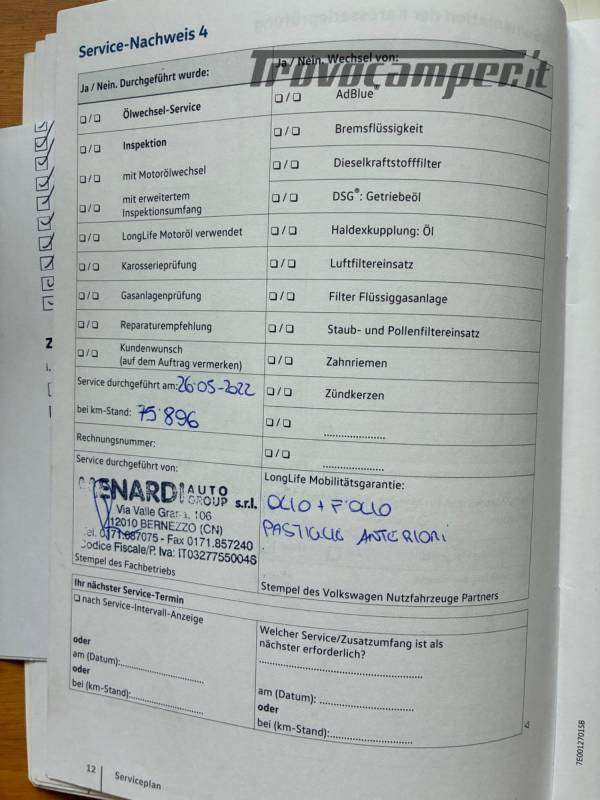 Service-Nachweis 4
Trovocamper.it
Ja / Nein. Durchgeführt wurde:
❑ / ❑ Ölwechsel-Service
❑ / ❑ Inspektion
❑ / ❑ mit Motorölwechsel
❑ / ❑ mit erweitertem
Inspektionsumfang
❑ / ❑ LongLife Motoröl verwendet
❑ / ❑ Karosserieprüfung
❑ / ❑ Gasanlagenprüfung
❑ / ❑ Reparaturempfehlung
❑ / ❑ Kundenwunsch
(auf dem Auftrag vermerken)
Service durchgeführt am: 26-05-2022
bei km-Stand: 75.896
Rechnungsnummer:
Service durchgeführt von:
AUTO
GROUP s.r.l.
Via Valle Grana, 106
12010 BERNEZZO (CN)
Tel. 0171.687075 - Fax 0171.857240
Codice Fiscale/P. Iva: IT03277550048
Stempel des Fachbetriebs
Ja / Nein. Wechsel von:
❑ / ❑ AdBlue
❑ / ❑ Bremsflüssigkeit
❑ / ❑ Dieselkraftstofffilter
❑ / ❑ DSG®: Getriebeöl
❑ / ❑ Haldexkupplung: Öl
❑ / ❑ Luftfiltereinsatz
❑ / ❑ Filter Flüssiggasanlage
❑ / ❑ Staub- und Pollenfiltereinsatz
❑ / ❑ Zahnriemen
❑ / ❑ Zündkerzen
❑ / ❑ ....................
❑ / ❑ ....................
LongLife Mobilitätsgarantie:
OLIO + F.OLIO
PASTIGLIE ANTERIORI
Stempel des Volkswagen Nutzfahrzeuge Partners
Ihr nächster Service-Termin
❑ nach Service-Intervall-Anzeige
oder
am (Datum):..........................
oder
bei (km-Stand):......................
Welcher Service/Zusatzumfang ist als
nächster erforderlich?
......................................................
am (Datum): ..............................
oder
bei (km-Stand):..........................
12 Serviceplan
7E0012701SB